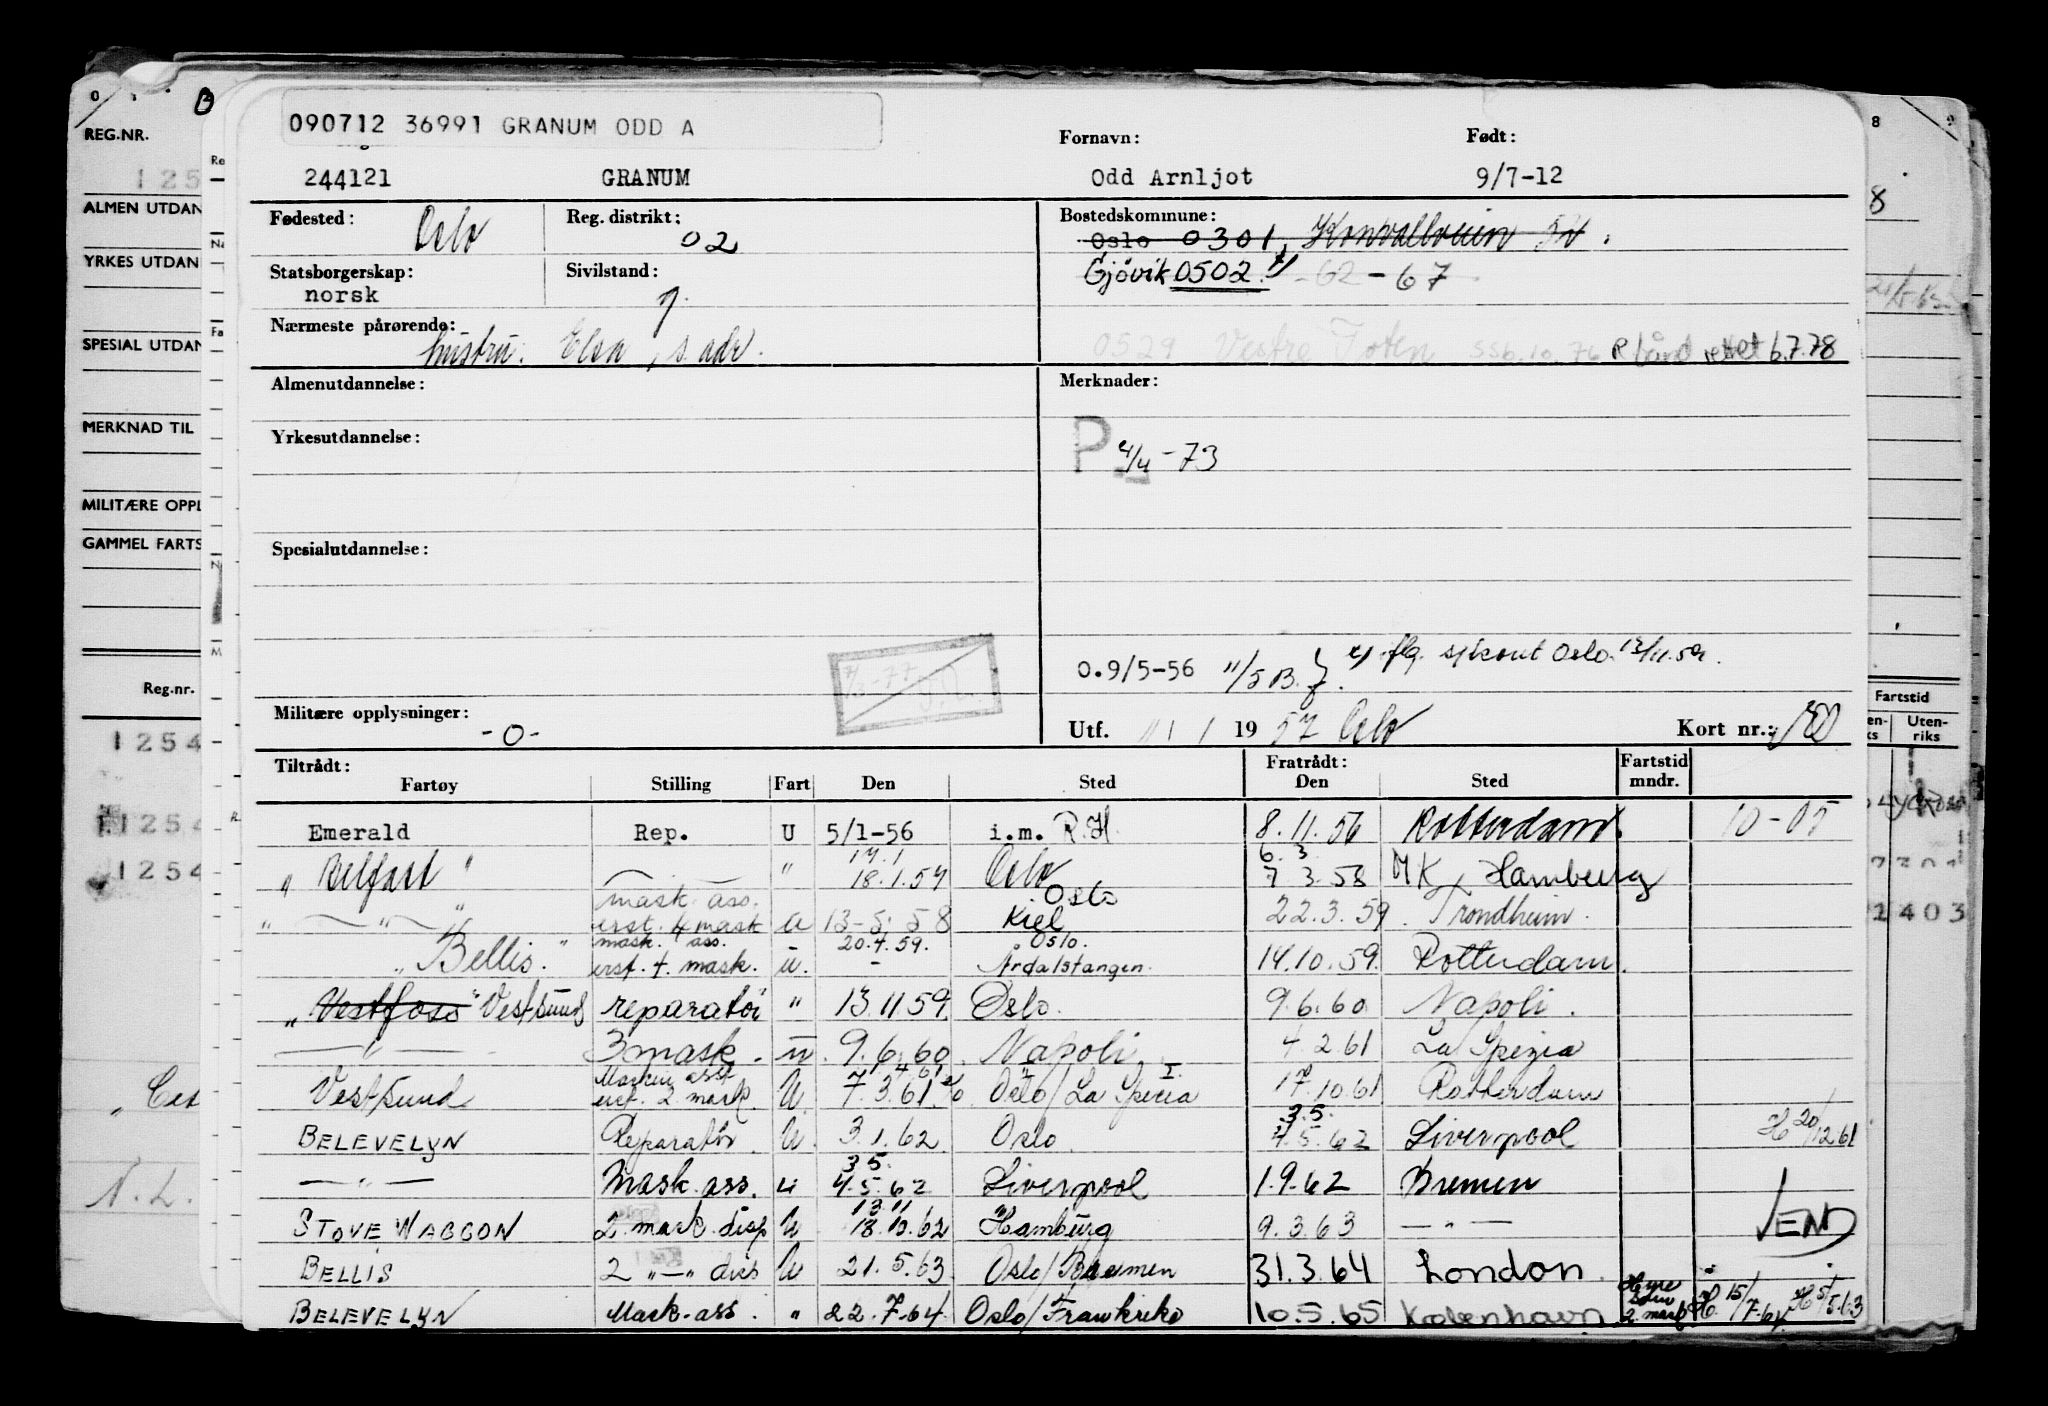 090712 36991 GRANUM ODD A
Fornavn: Født:
244121 GRANUM Odd Arnljot 9/7-12
Fødested: Oslo Reg. distrikt: 02 Bostedskommune:
Oslo 0301, Konvallveien
Statsborgerskap: norsk Sivilstand: Gjövik 0502 -62-67
Nærmeste pårørende: hustru: Elsa, s. adr. 0529 Vestre Toten ssb.10.76 rettet 6.7.78
Almenutdannelse: Merknader:
P 4/4-73
Yrkesutdannelse:
Spesialutdannelse:
0.9/5-56 11/5 B. flg. sjkont Oslo 13/11.59.
Militære opplysninger: -0- Utf. 11/1 1957 Oslo Kort nr.:
Tiltrådt: Fratrådt: Fartstid
Fartøy Stilling Fart Den Sted Den Sted mndr.
Emerald Rep. U 5/1-56 i.m. R.H. 8.11.56 Rotterdam. 10-05
" Belfast " " 17.1 18.1.57 Oslo 6.3. 7.3.58 MK Hamburg
" — " — mask. ass. erst. 4 mask U 13-5.58 Oslo Kiel 22.3.59. Trondheim.
" Bellis. " mask. ass. erst. 4. mask. u. 20.4.59. - Oslo. Årdalstangen. 14.10.59. Rotterdam.
" Vestfoss " Vestsund reparatör " 13.11.59. Oslo. 9.6.60 Napoli.
— " — 3 mask. u 9.6.60. Napoli. 4.2.61 La Spezia
Vestsund Maskin asst erst. 2. mask. U. 7.3.61. Oslo/La Spezia 17.10.61 Rotterdam
BELEVELYN Reparatör. U. 3.1.62 Oslo. 3.5. 4.5.62 Liverpool H 20/12 61
— " — Mask. ass. u 3.5. 4.5.62 Liverpool 1.9.62 Bremen
STOVE WAGGON 2. mask. disp U 13.11 18.10.62 Hamburg 9.3.63 — " — END
BELLIS 2 " — " disp U 21.5.63 Oslo/Bremen 31.3.64 London.
BELEVELYN Mask. ass. " 22.7.64 Oslo/Frankrike 10.5.65 København Hyre som 2. mask H. 15/7.64 H 5/5.63
REG.NR.
ALMEN UTDAN
YRKES UTDAN
SPESIAL UTDAN
MERKNAD TIL
MILITÆRE OPPL
GAMMEL FARTS
Reg.nr.
1254
1254
1254
N. L.
Fartstid
Uten-
riks
1403